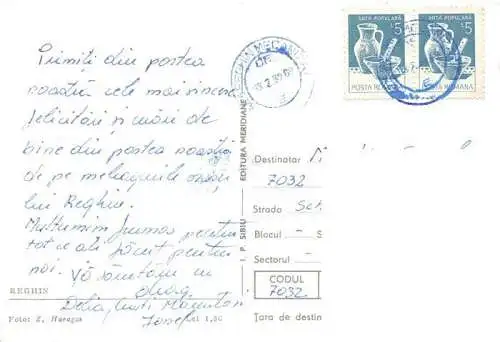 Primiți din partea
noastră cele mai sincere
felicitări și urări de
bine din partea noastră
de pe meleagurile
lui Reghin.
Mulțumim frumos pentru
tot ce ați făcut pentru
noi. Vă sărutăm cu
drag.
Delia,
REGHIN
Foto: Z. Haragos
Lei 1,50
I. P. SIBIU EDITURA MERIDIANE
ARTA POPULARA 5L
POSTA ROMANA
ARTA POPULARA 5L
POSTA ROMANA
Destinatar
7032
Strada
Blocul - S
Sectorul -
CODUL
7032
Țara de destin